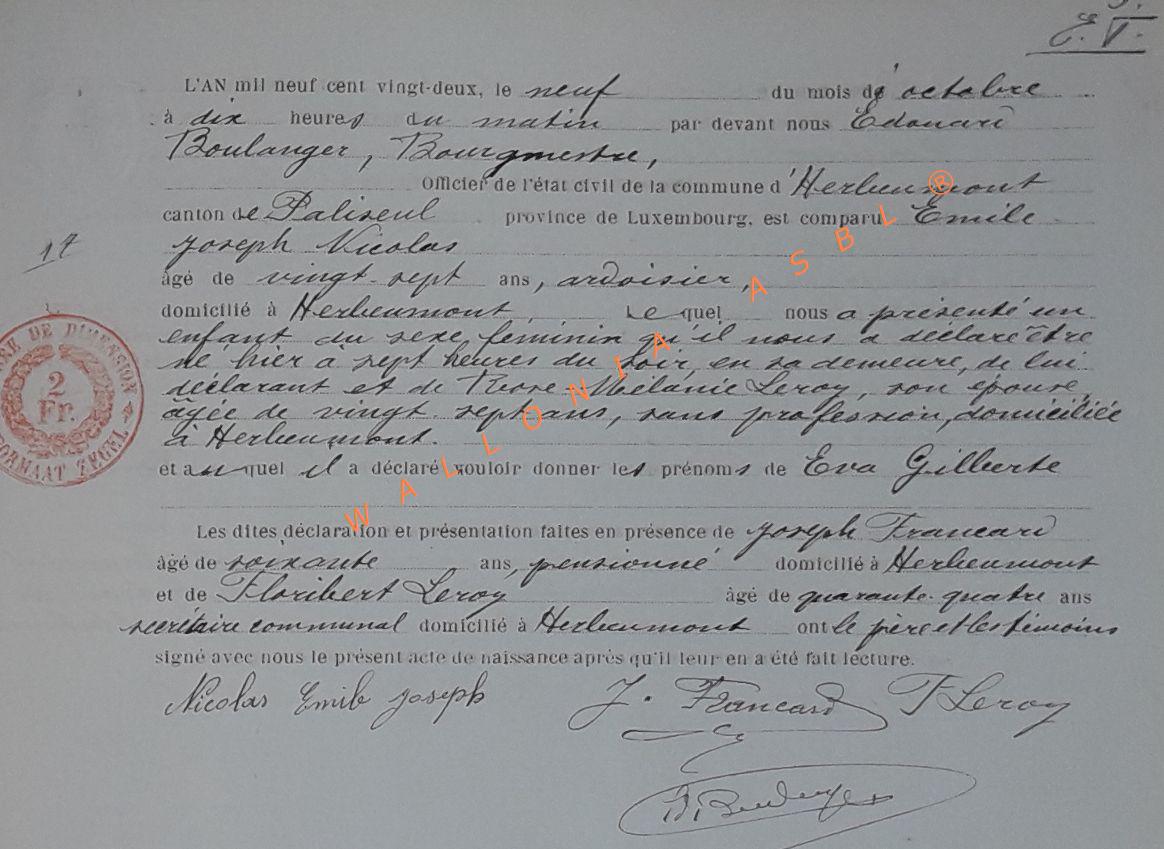 E. V.
L'AN mil neuf cent vingt-deux, le neuf du mois d' octobre
à dix heures du matin par devant nous Edouard
Boulanger, Bourgmestre,
Officier de l'état civil de la commune d'Herbeumont
canton de Paliseul province de Luxembourg, est comparu Emile
Joseph Nicolas
17
âgé de vingt-sept ans, ardoisier,
domicilié à Herbeumont, Lequel nous a présenté un
enfant du sexe féminin qu'il nous a déclaré être
né hier à sept heures du soir, en sa demeure, de lui
déclarant et de Marie Mélanie Leroy, son épouse,
âgée de vingt-sept ans, sans profession, domiciliée
à Herbeumont.
et auquel il a déclaré vouloir donner les prénoms de Eva Gilberte
Les dites déclaration et présentation faites en présence de Joseph Francard
âgé de soixante ans, pensionné domicilié à Herbeumont
et de Floribert Leroy âgé de quarante-quatre ans
secrétaire communal domicilié à Herbeumont ont le père et les témoins
signé avec nous le présent acte de naissance après qu'il leur en a été fait lecture.
Nicolas Emile Joseph J. Francard F Leroy
Boulanger
DE DIMENSION
2
Fr.
FORMAAT ZEGEL
WALLONIA ASBL ®